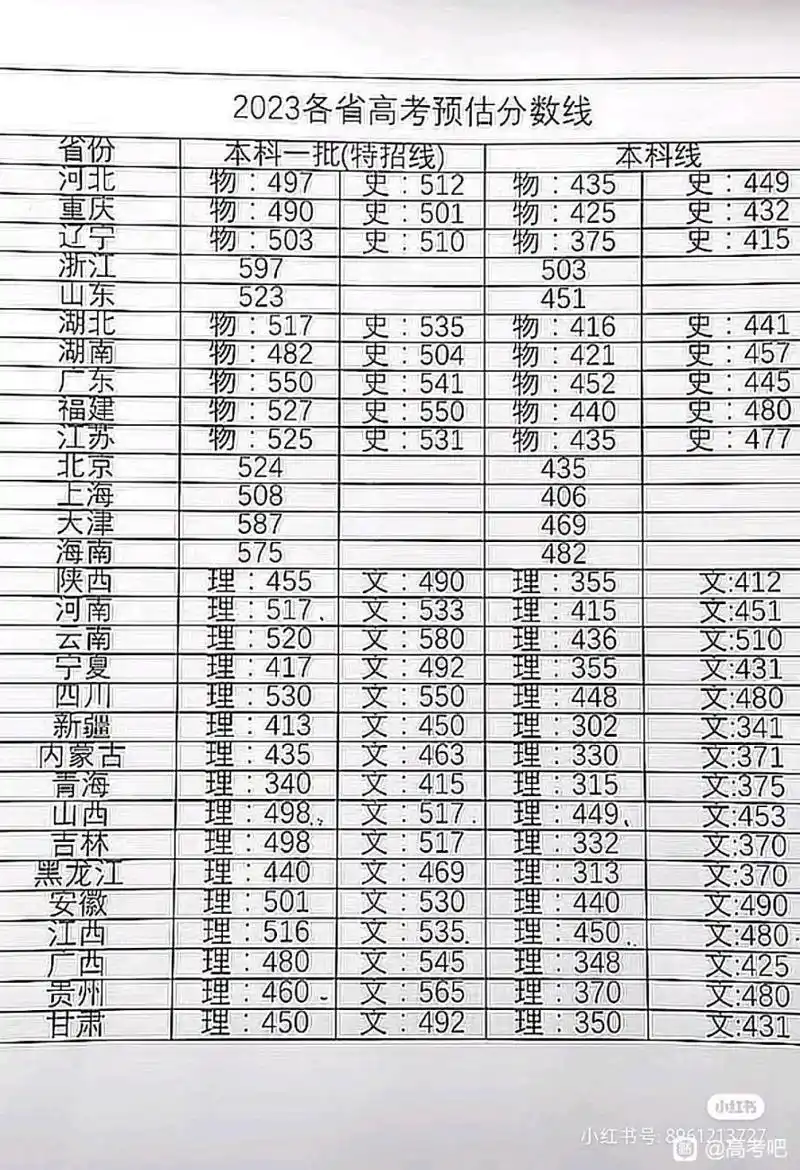 2023各省高考预估分数线
省份 本科一批(特招线) 本科线
河北 物：497 史：512 物：435 史：449
重庆 物：490 史：501 物：425 史：432
辽宁 物：503 史：510 物：375 史：415
浙江 597 503
山东 523 451
湖北 物：517 史：535 物：416 史：441
湖南 物：482 史：504 物：421 史：457
广东 物：550 史：541 物：452 史：445
福建 物：527 史：550 物：440 史：480
江苏 物：525 史：531 物：435 史：477
北京 524 435
上海 508 406
天津 587 469
海南 575 482
陕西 理：455 文：490 理：355 文:412
河南 理：517 文：533 理：415 文:451
云南 理：520 文：580 理：436 文:510
宁夏 理：417 文：492 理：355 文:431
四川 理：530 文：550 理：448 文:480
新疆 理：413 文：450 理：302 文:341
内蒙古 理：435 文：463 理：330 文:371
青海 理：340 文：415 理：315 文:375
山西 理：498 文：517 理：449 文:453
吉林 理：498 文：517 理：332 文:370
黑龙江 理：440 文：469 理：313 文:370
安徽 理：501 文：530 理：440 文:490
江西 理：516 文：535 理：450 文:480
广西 理：480 文：545 理：348 文:425
贵州 理：460 文：565 理：370 文:480
甘肃 理：450 文：492 理：350 文:431
小红书
小红书号: 8961213727
@高考吧